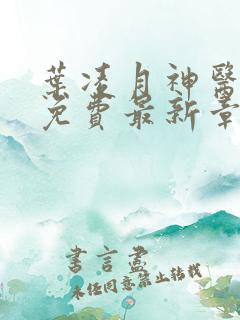 葉凌月神醫
免費最新章
書言盡
未經同意禁止轉載